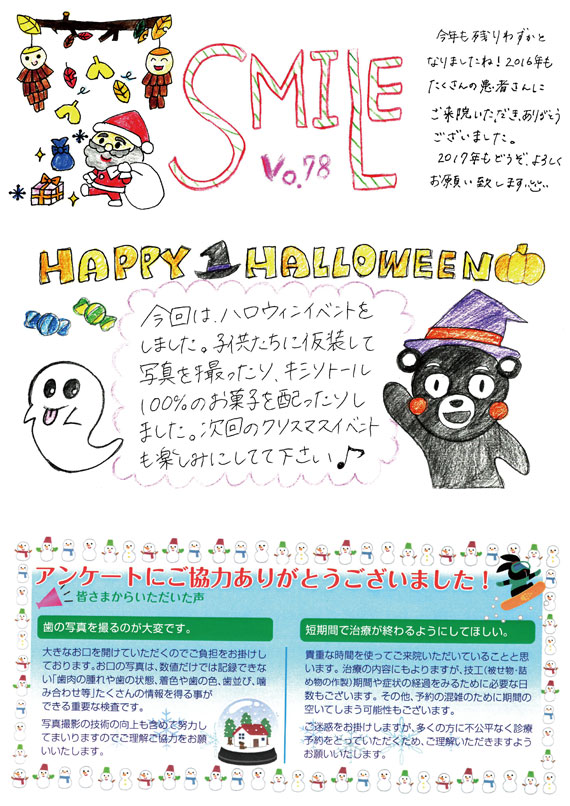 SMILE
Vo.78
今年も残りわずかと
なりましたね！2016年も
たくさんの患者さんに
ご来院いただき、ありがとう
ございました。
2017年もどうぞ、よろしく
お願い致します
HAPPY HALLOWEEN
今回は、ハロウィンイベントを
しました。子供たちに仮装して
写真を撮ったり、キシリトール
100%のお菓子を配ったりし
ました。次回のクリスマスイベント
も楽しみにしてて下さい♪
アンケートにご協力ありがとうございました！
皆さまからいただいた声
歯の写真を撮るのが大変です。
大きなお口を開けていただくのでご負担をお掛け
しております。お口の写真は、数値だけでは記録できな
い「歯肉の腫れや歯の状態、着色や歯の色、歯並び、噛
み合わせ等」たくさんの情報を得る事が
できる重要な検査です。
写真撮影の技術の向上も含めて努力し
てまいりますのでご理解ご協力をお願
いいたします。
短期間で治療が終わるようにしてほしい。
貴重な時間を使ってご来院いただいていることと思
います。治療の内容にもよりますが、技工(被せ物・詰
め物の作製)期間や症状の経過をみるために必要な日
数もございます。その他、予約の混雑のために期間の
空いてしまう可能性もございます。
ご迷惑をお掛けしますが、多くの方に不公平なく診療
予約をとっていただくため、ご理解いただきますよう
お願いいたします。